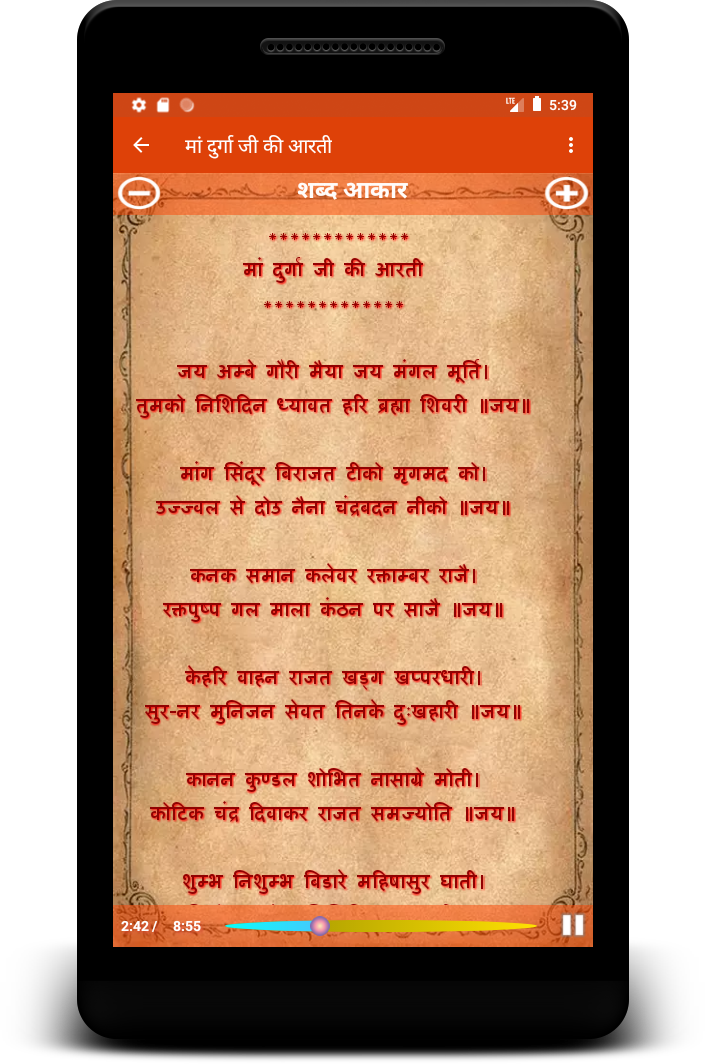 LTE 5:39
मां दुर्गा जी की आरती
शब्द आकार
*************
मां दुर्गा जी की आरती
*************
जय अम्बे गौरी मैया जय मंगल मूर्ति।
तुमको निशिदिन ध्यावत हरि ब्रह्मा शिवरी ॥जय॥
मांग सिंदूर बिराजत टीको मृगमद को।
उज्ज्वल से दोउ नैना चंद्रबदन नीको ॥जय॥
कनक समान कलेवर रक्ताम्बर राजै।
रक्तपुष्प गल माला कंठन पर साजै ॥जय॥
केहरि वाहन राजत खड्ग खप्परधारी।
सुर-नर मुनिजन सेवत तिनके दुःखहारी ॥जय॥
कानन कुण्डल शोभित नासाग्रे मोती।
कोटिक चंद्र दिवाकर राजत समज्योति ॥जय॥
शुम्भ निशुम्भ बिडारे महिषासुर घाती।
2:42 / 8:55